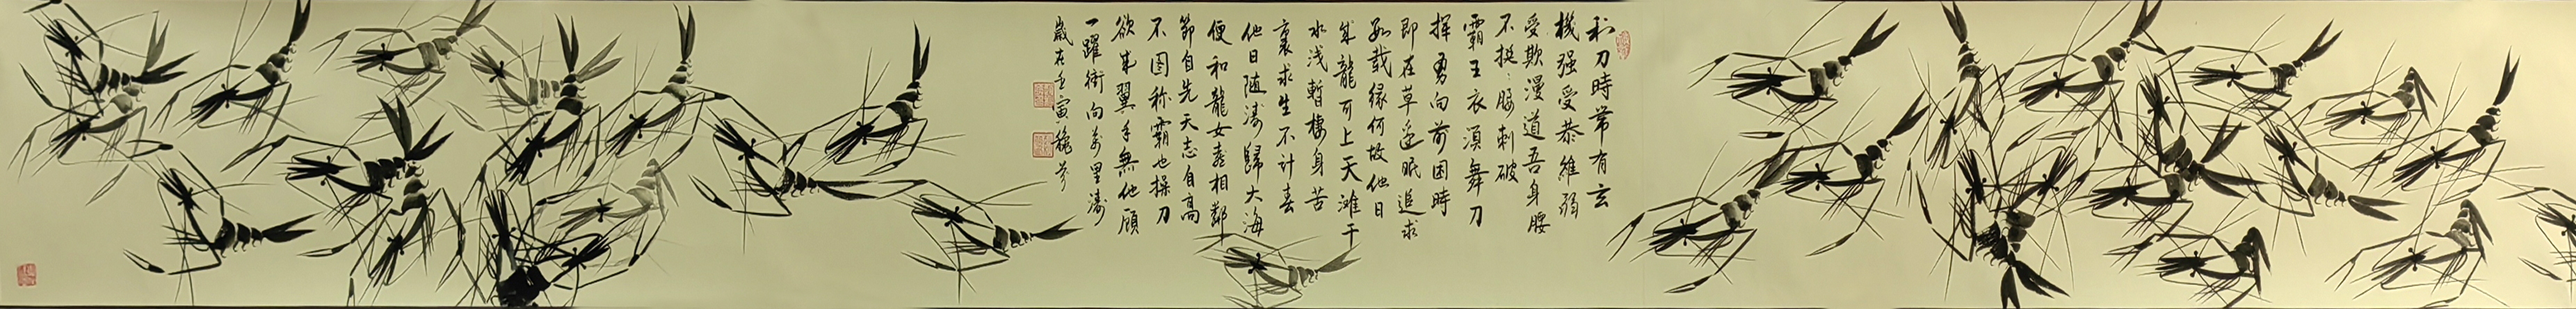 利刀時常有玄
機强受恭維弱
受欺漫道吾身腰
不挺腰刺破
霸王衣須舞刀
揮勇向前困時
即在草邊眠追求
數載緣何故他日
成龍可上天灘干
水浅暫棲身苦
裏求生不计春
他日随濤歸大海
便和龍女喜相鄰
節自先天志自高
不图称霸也操刀
欲生翼手無他顾
一躍衝向萬里濤
歲在壬寅